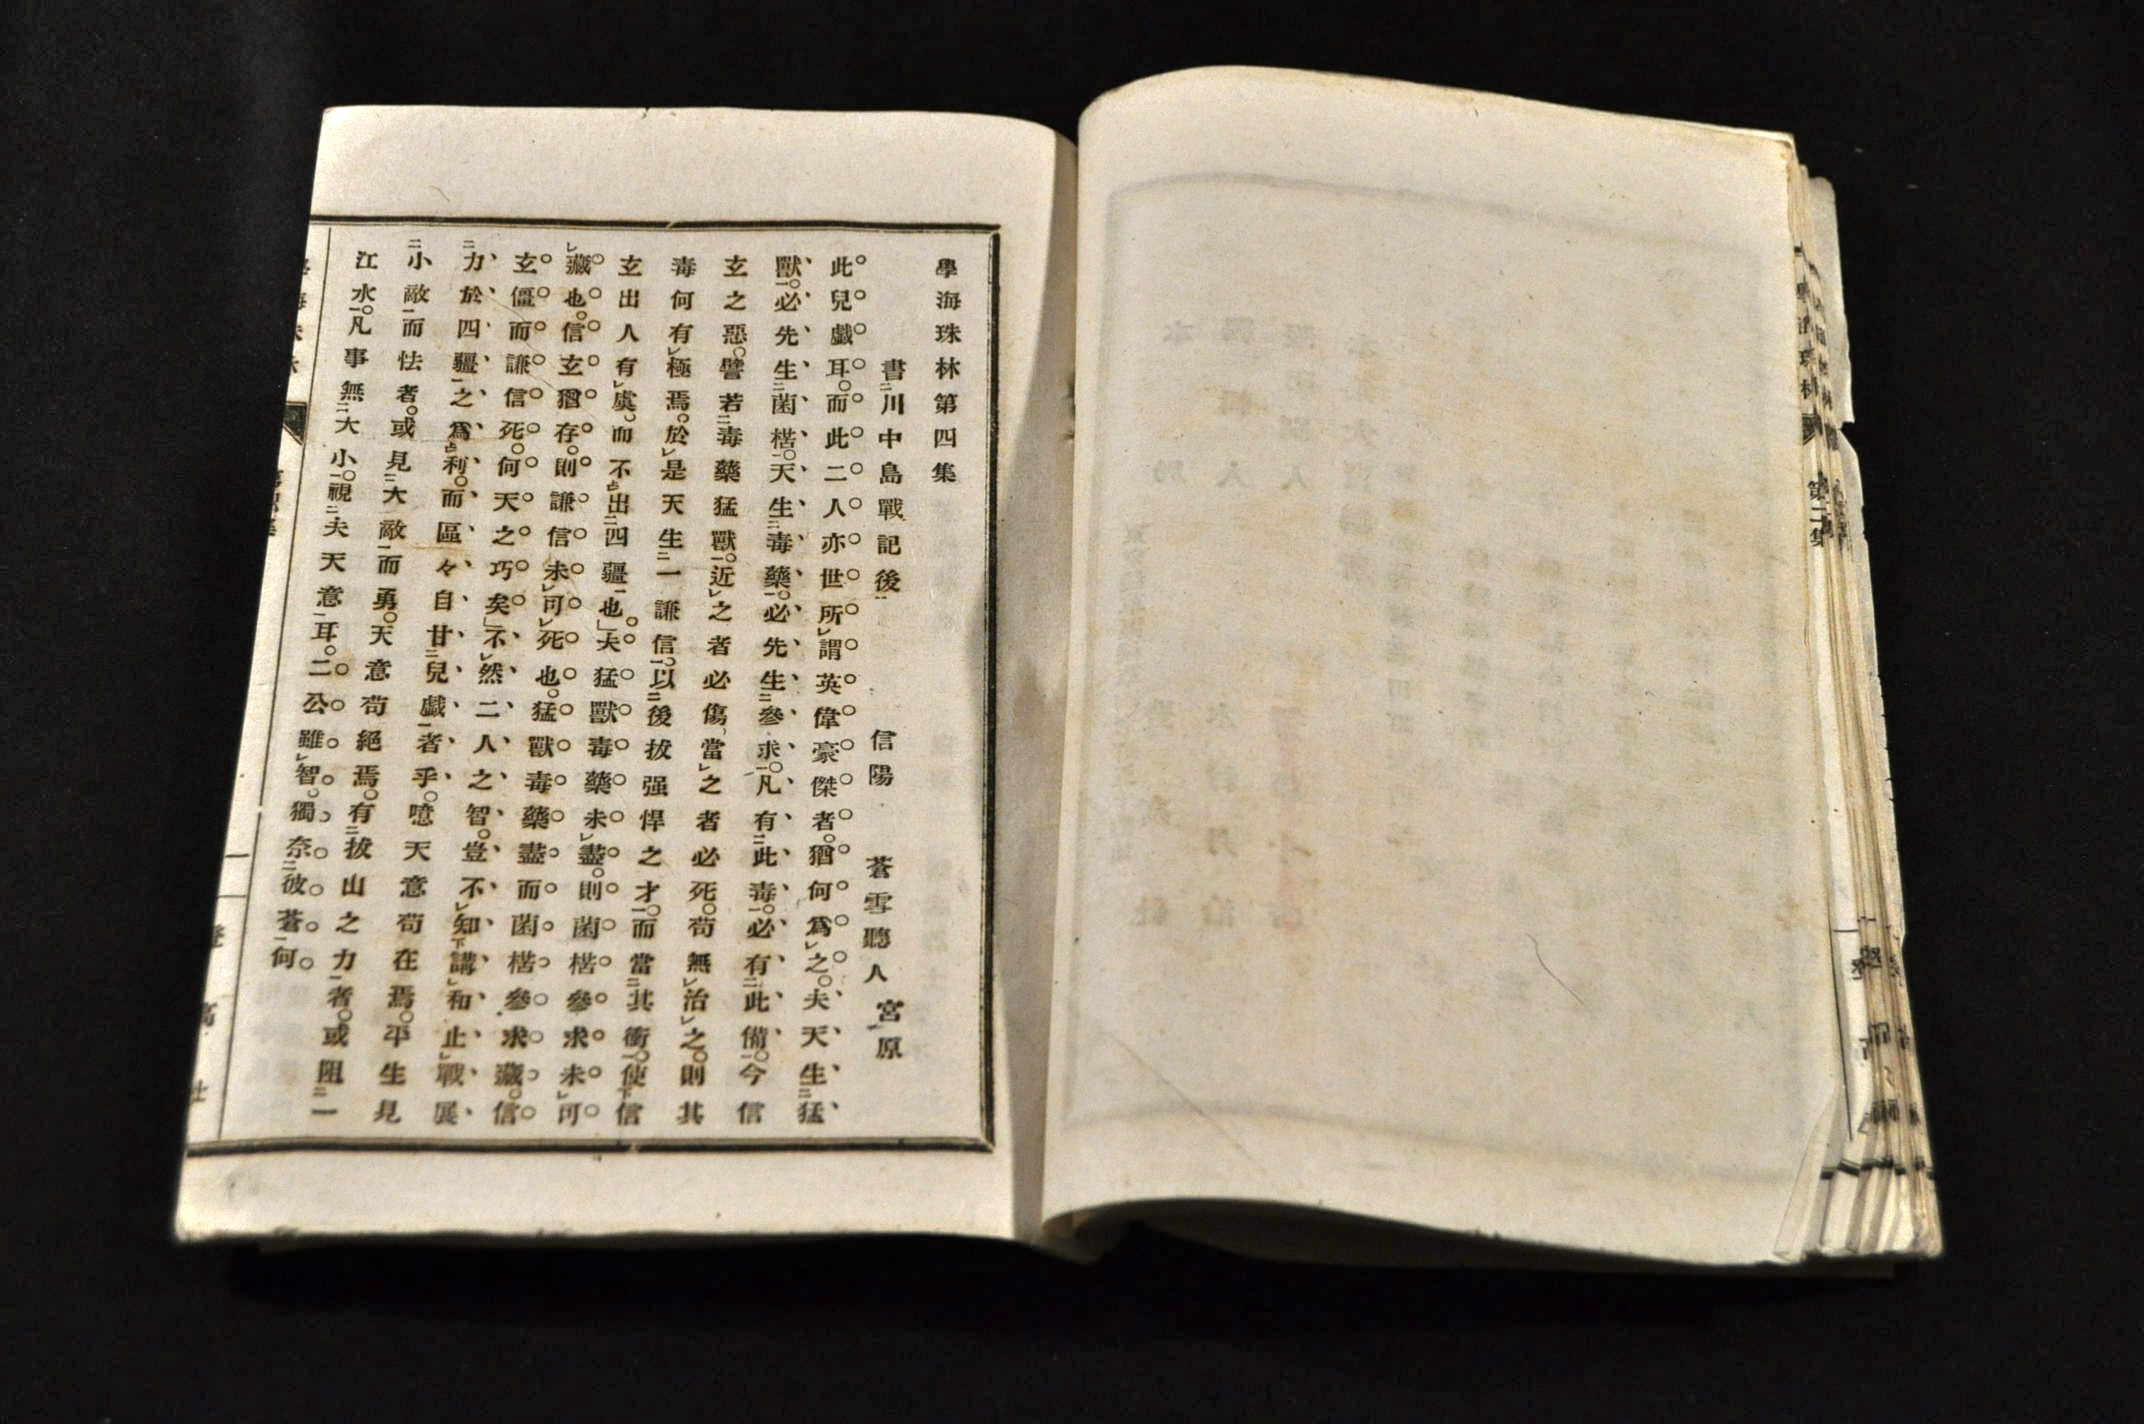 學海珠林第四集
書川中島戰記後 信陽 蒼雪聽人 宮原
此兒戲耳。而此二人亦世所謂英偉豪傑者。猶何爲之。夫天生猛
獸。必先生菌楛。天生毒藥。必先生參求。凡有此毒。必有此備。今信
玄之惡。譬若毒藥猛獸。近之者必傷、當之者必死。苟無治之。則其
毒何有極焉。於是天生一謙信。以後拔强悍之才。而當其衝。使信
玄出人有虞。而不出四疆也。」夫猛獸毒藥未盡。則菌楛參求未可
藏也。信玄猶存。則謙信未可死也。猛獸毒藥盡而菌楛參求藏。信
玄僵而謙信死。何天之巧矣」不然二人之智。豈不知講和止戰、展
力於四疆之爲利。而區々自甘兒戲者乎。噫天意苟在焉。平生見
小敵而怯者。或見大敵而勇。天意苟絕焉。有拔山之力者。或阻一
江水。凡事無大小。視夫天意耳。二公雖智。獨奈彼蒼何
第二集